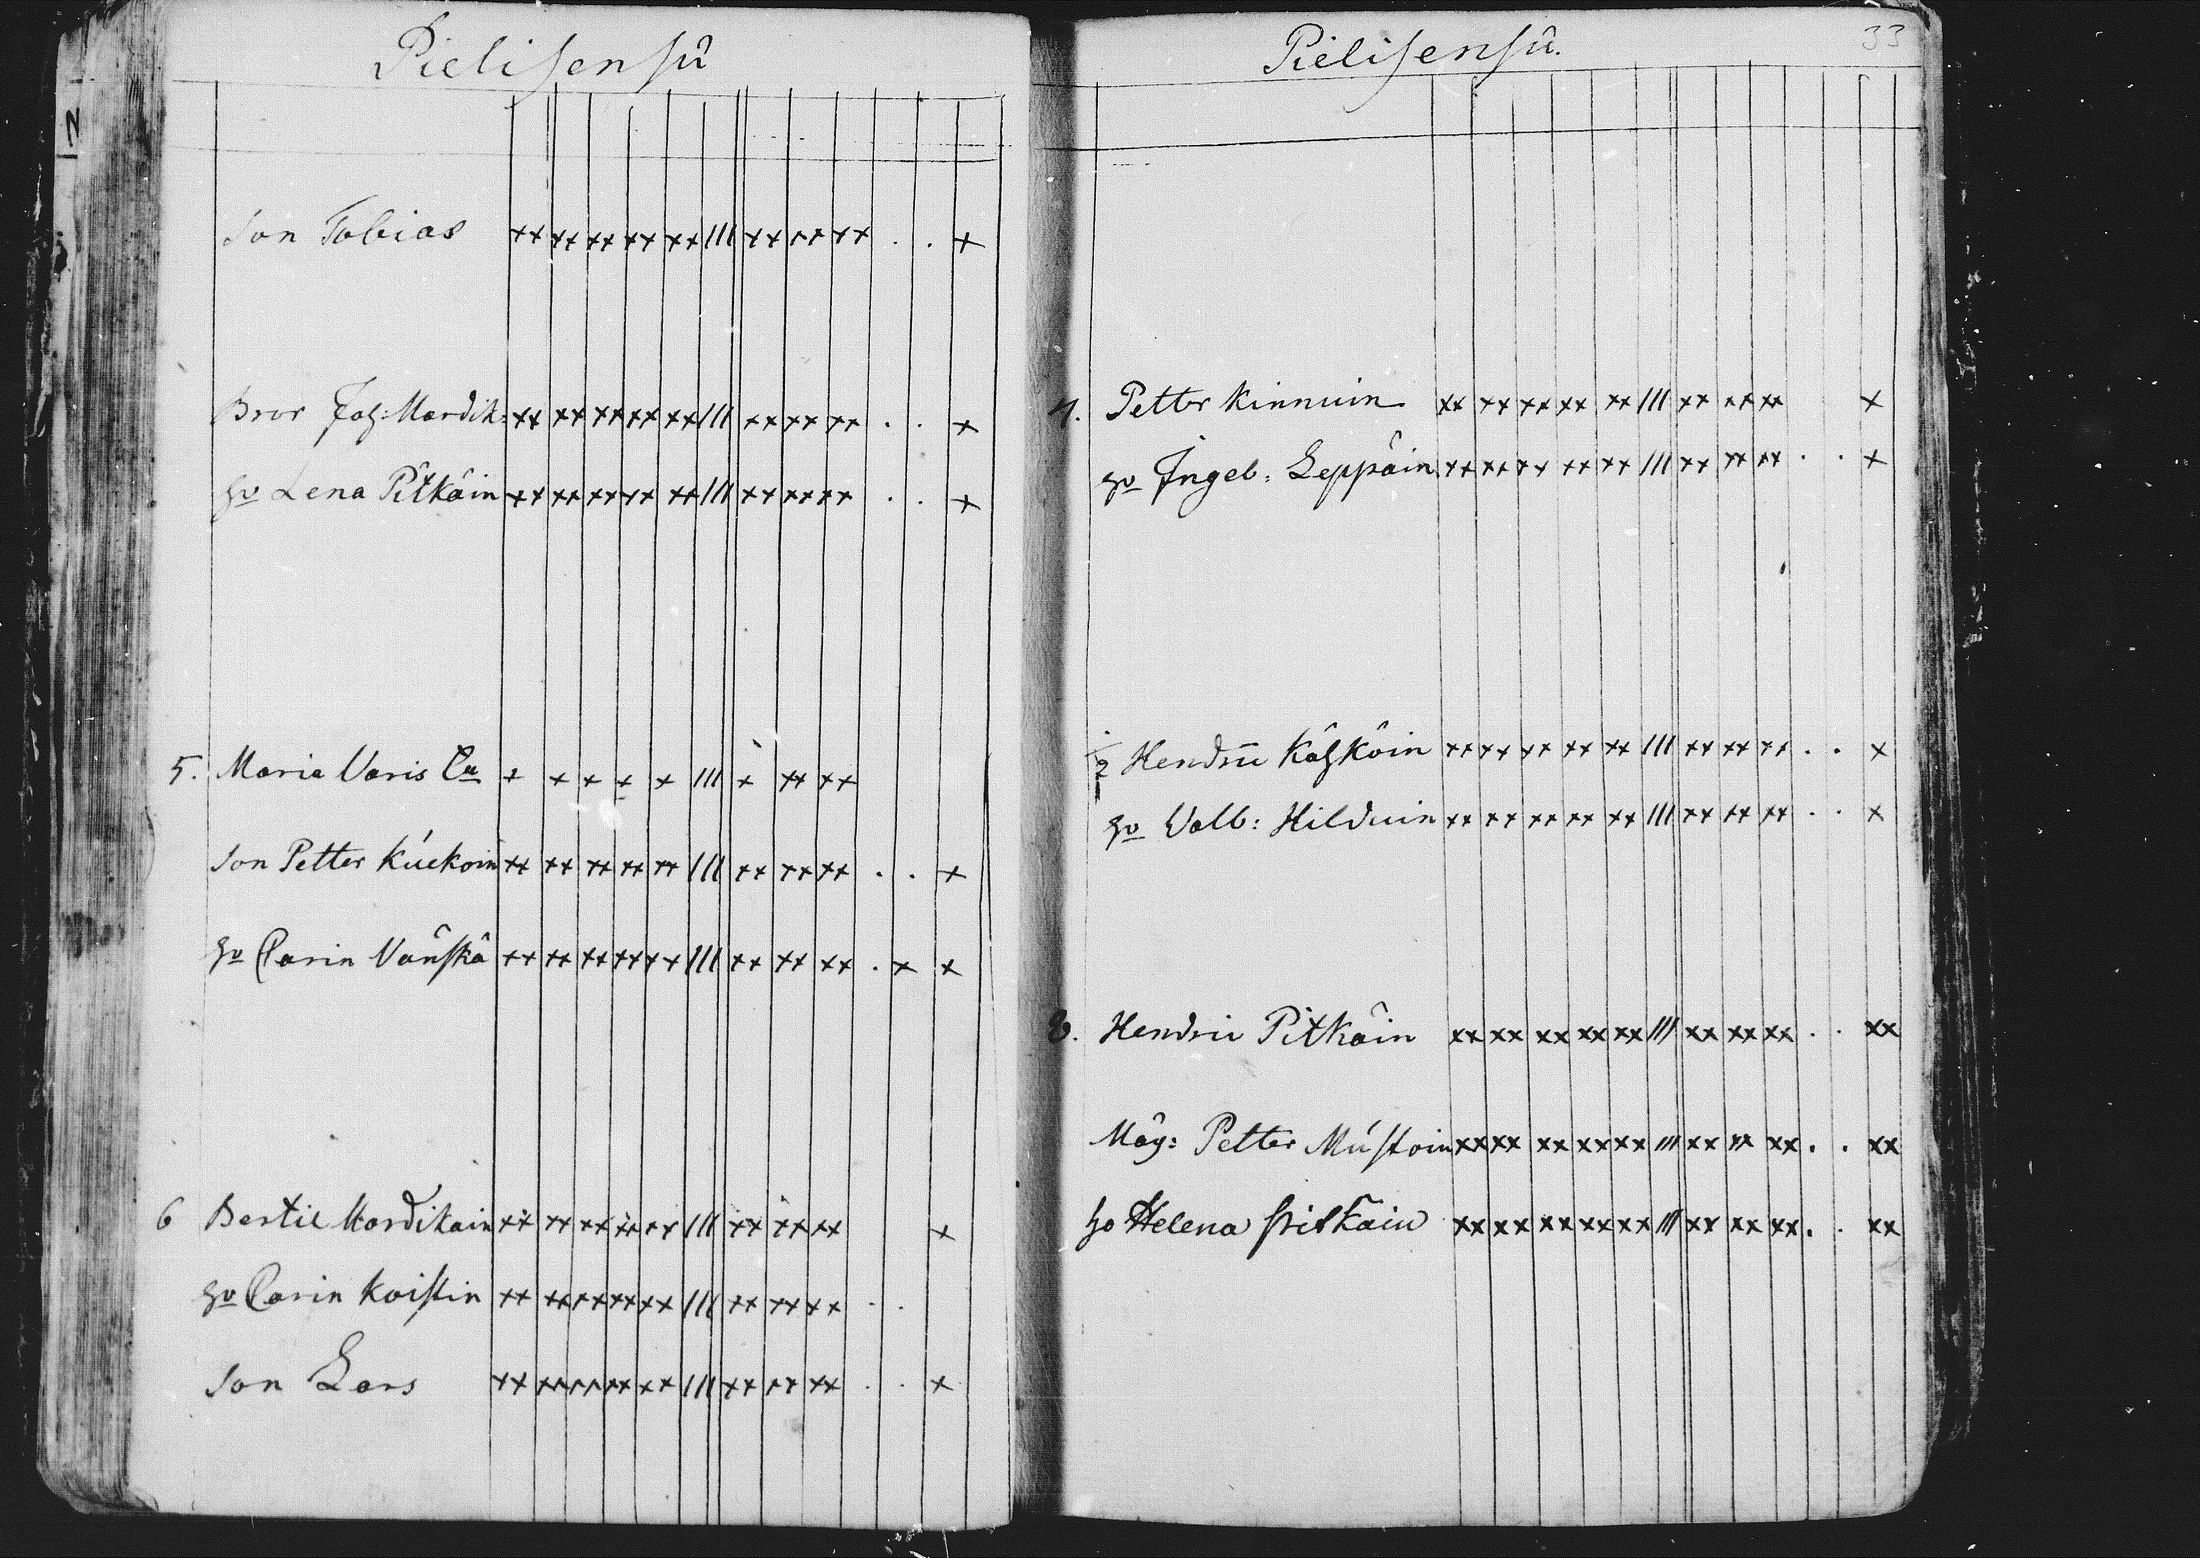 Pielisensû
Son Tobias xx xx xx xx xx III xx xx xx . . x
Bror Joh: Mardik: xx xx xx xx xx III xx xx xx . . x
hu Lena Pitkäin xx xx xx xx xx III xx xx xx . . x
5. Maria Varis Ea x x x x x III x xx xx
Son Petter Kuckoin xx xx xx xx xx III xx xx xx . . x
hu Carin Vänskä xx xx xx xx xx III xx xx xx . x x
6 Bertil Mardikain xx xx xx xx xx III xx xx xx x
hu Carin Koistin xx xx xx xx xx III xx xx xx . .
Son Lars xx xx xx xx xx III xx xx xx . . x
Pielisensû. 33
7. Petter Kinnuin xx xx xx xx xx III xx xx xx x
hu Ingeb: Leppäin xx xx xx xx xx III xx xx xx . . x
1/2 Hendric Kähköin xx xx xx xx xx III xx xx xx . . x
hu Valb: Hilduin xx xx xx xx xx III xx xx xx . . x
8. Hendric Pitkäin xx xx xx xx xx III xx xx xx . . xx
Måg: Petter Mustoin xx xx xx xx xx III xx xx xx . . xx
hu Helena Pitkäin xx xx xx xx xx III xx xx xx . . xx